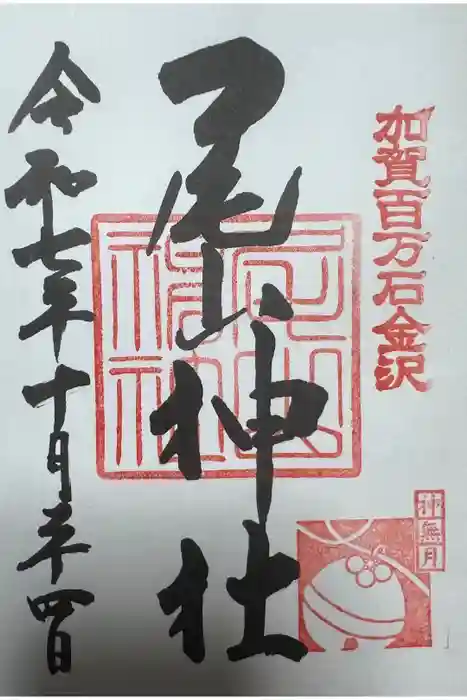 加賀百万石金沢
神無月
尾山神社
令和七年十月二十四日